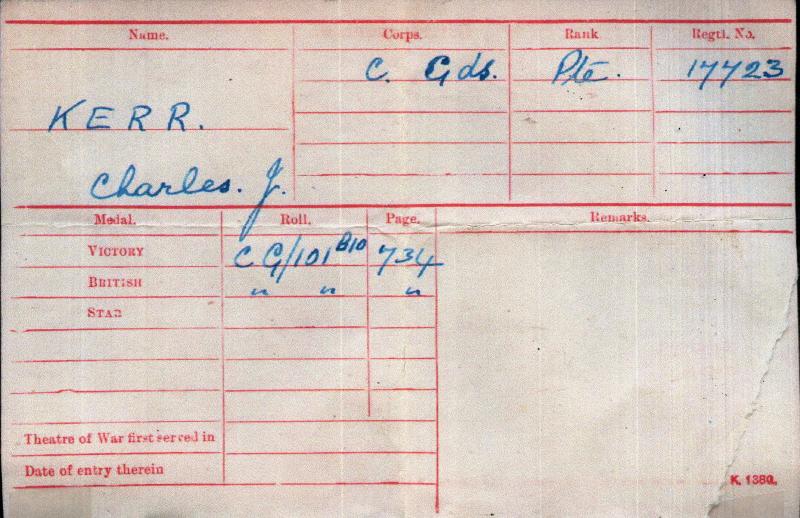 Name. Corps. Rank Regtl. No.
C. Gds. Pte. 17723
KERR.
Charles. J.
Medal. Roll. Page. Remarks.
VICTORY CG/101 B10 734
BRITISH " " "
STAR
Theatre of War first served in
Date of entry therein
K. 1380.